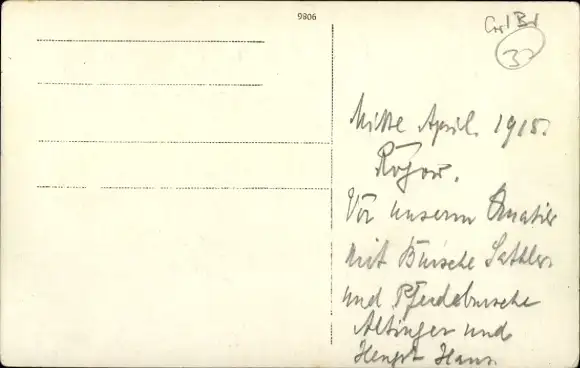 9806
37
Mitte April. 1915.
Rogow.
Vor unserm Quatier
mit Bursche Sattler
und Pferdebursche
Altinger und
Hengst Hans.